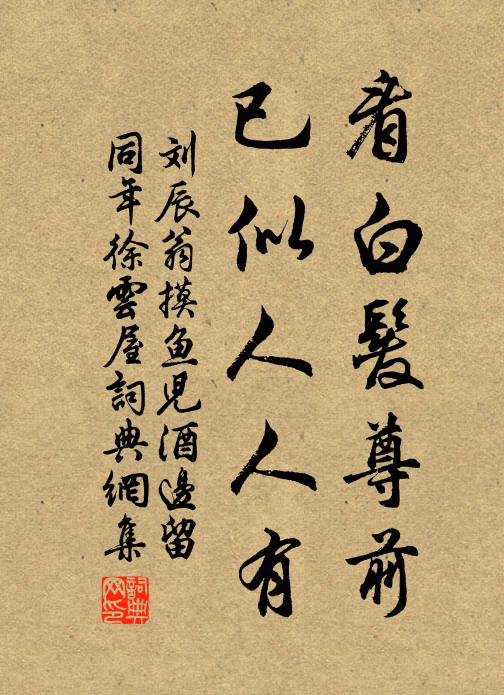 看白髮尊前
已似人人有
刘辰翁摸鱼児酒邊留
同年徐雲屋詞典網集
詞典网印